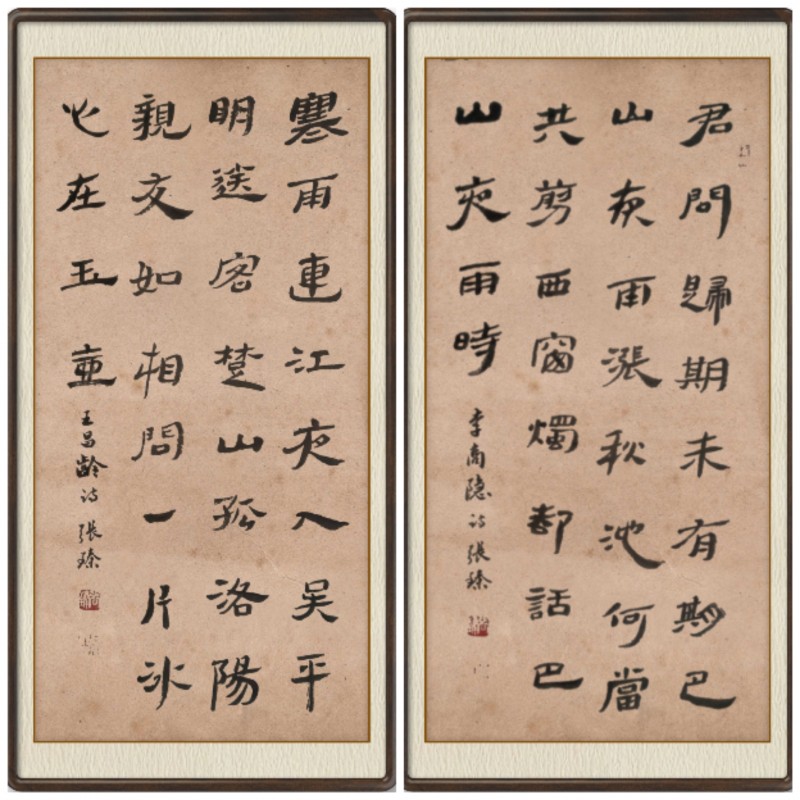 寒雨連江夜入吴平
明送客楚山孤洛陽
親友如相問一片冰
心在玉壺
王昌齡诗 張瑧
君問歸期未有期巴
山夜雨漲秋池何當
共剪西窗燭却話巴
山夜雨時
李商隐诗 張瑧